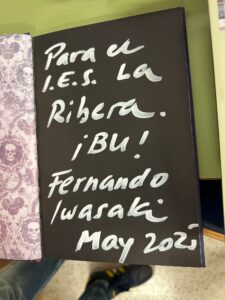 Para el
I.E.S. La
Ribera.
¡BU!
Fernando
Iwasaki
May 2025